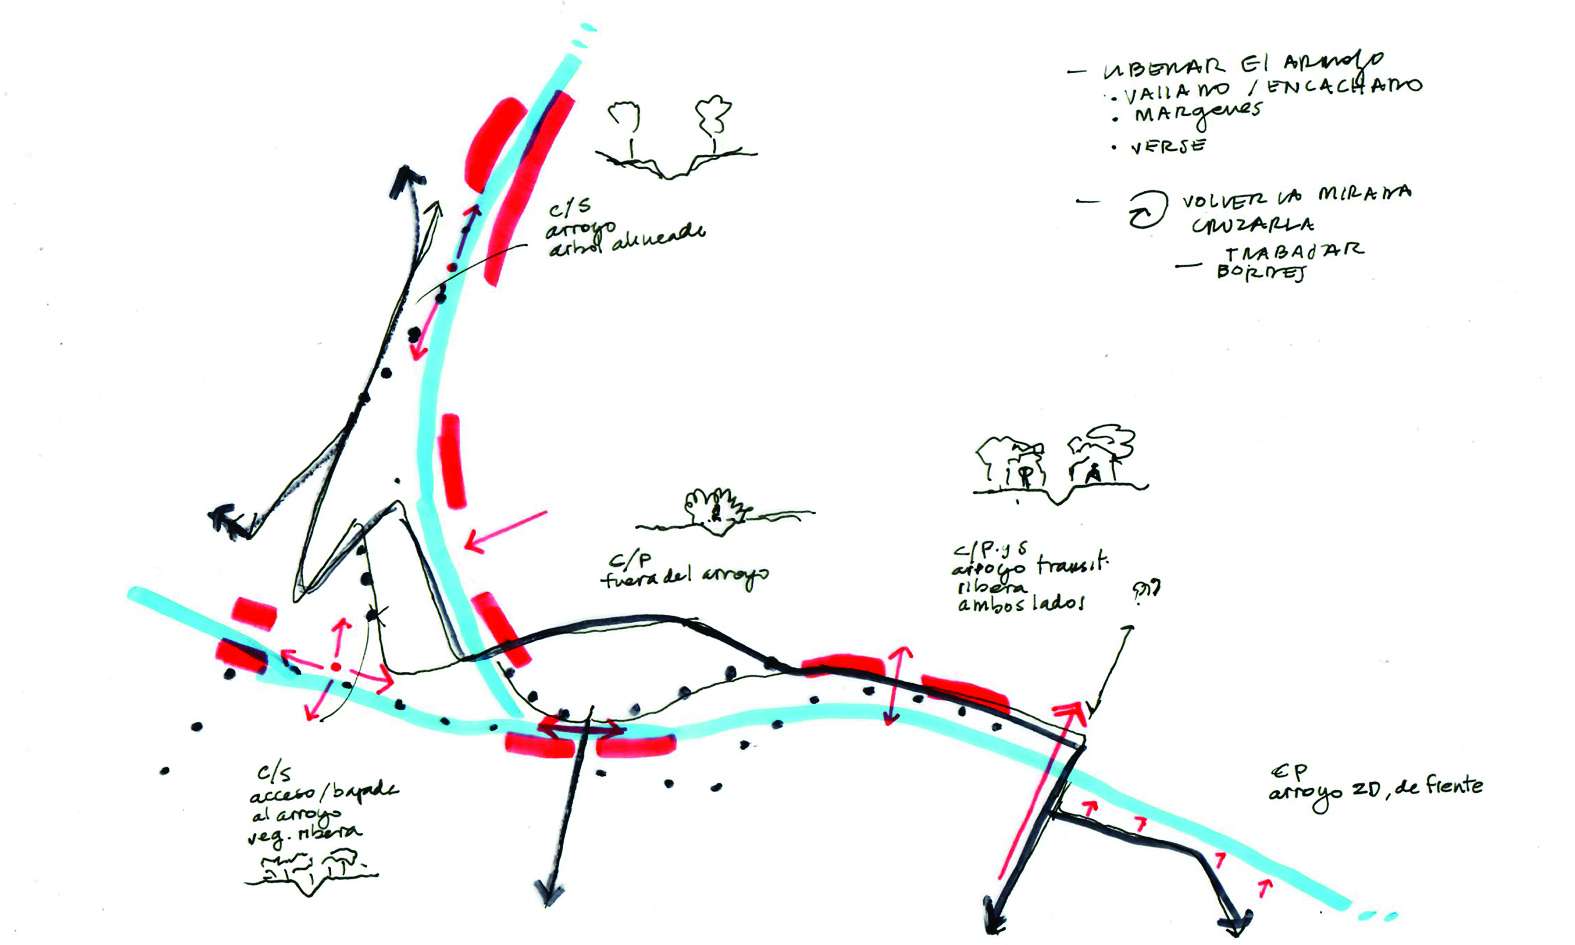 – LIBERAR El ARROYO
· VALLADO / ENCACHADO
· MARGENES
· VERSE
– VOLVER LA MIRADA
CRUZARLA
– TRABAJAR
BORDES
C/S
arroyo
árbol alineado
C/P
fuera del arroyo
C/P.y S
arroyo transit.
ribera
ambos lados
C/S
acceso/bajada
al arroyo
veg. ribera
arroyo 2D, de frente